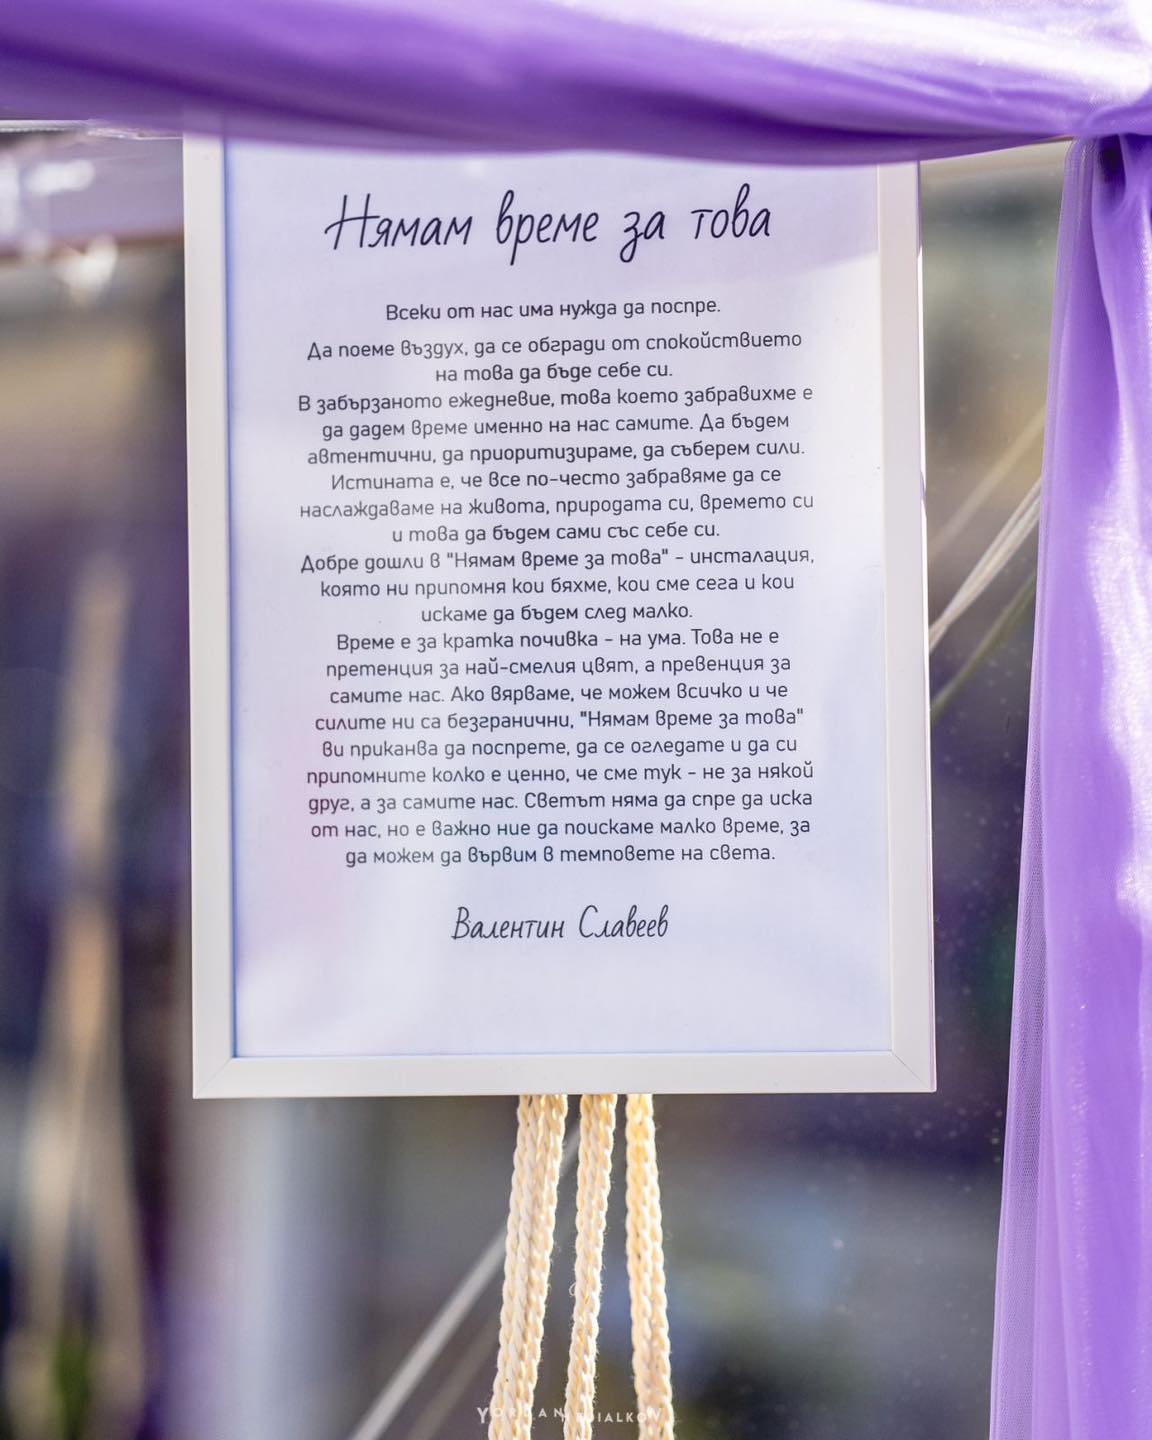 Нямам време за това
Всеки от нас има нужда да поспре.
Да поеме въздух, да се обгради от спокойствието
на това да бъде себе си.
В забързаното ежедневие, това което забравихме е
да дадем време именно на нас самите. Да бъдем
автентични, да приоритизираме, да съберем сили.
Истината е, че все по-често забравяме да се
наслаждаваме на живота, природата си, времето си
и това да бъдем сами със себе си.
Добре дошли в "Нямам време за това" - инсталация,
която ни припомня кои бяхме, кои сме сега и кои
искаме да бъдем след малко.
Време е за кратка почивка - на ума. Това не е
претенция за най-смелия цвят, а превенция за
самите нас. Ако вярваме, че можем всичко и че
силите ни са безгранични, "Нямам време за това"
ви приканва да поспрете, да се огледате и да си
припомните колко е ценно, че сме тук - не за някой
друг, а за самите нас. Светът няма да спре да иска
от нас, но е важно ние да поискаме малко време, за
да можем да вървим в темповете на света.
Валентин Славеев